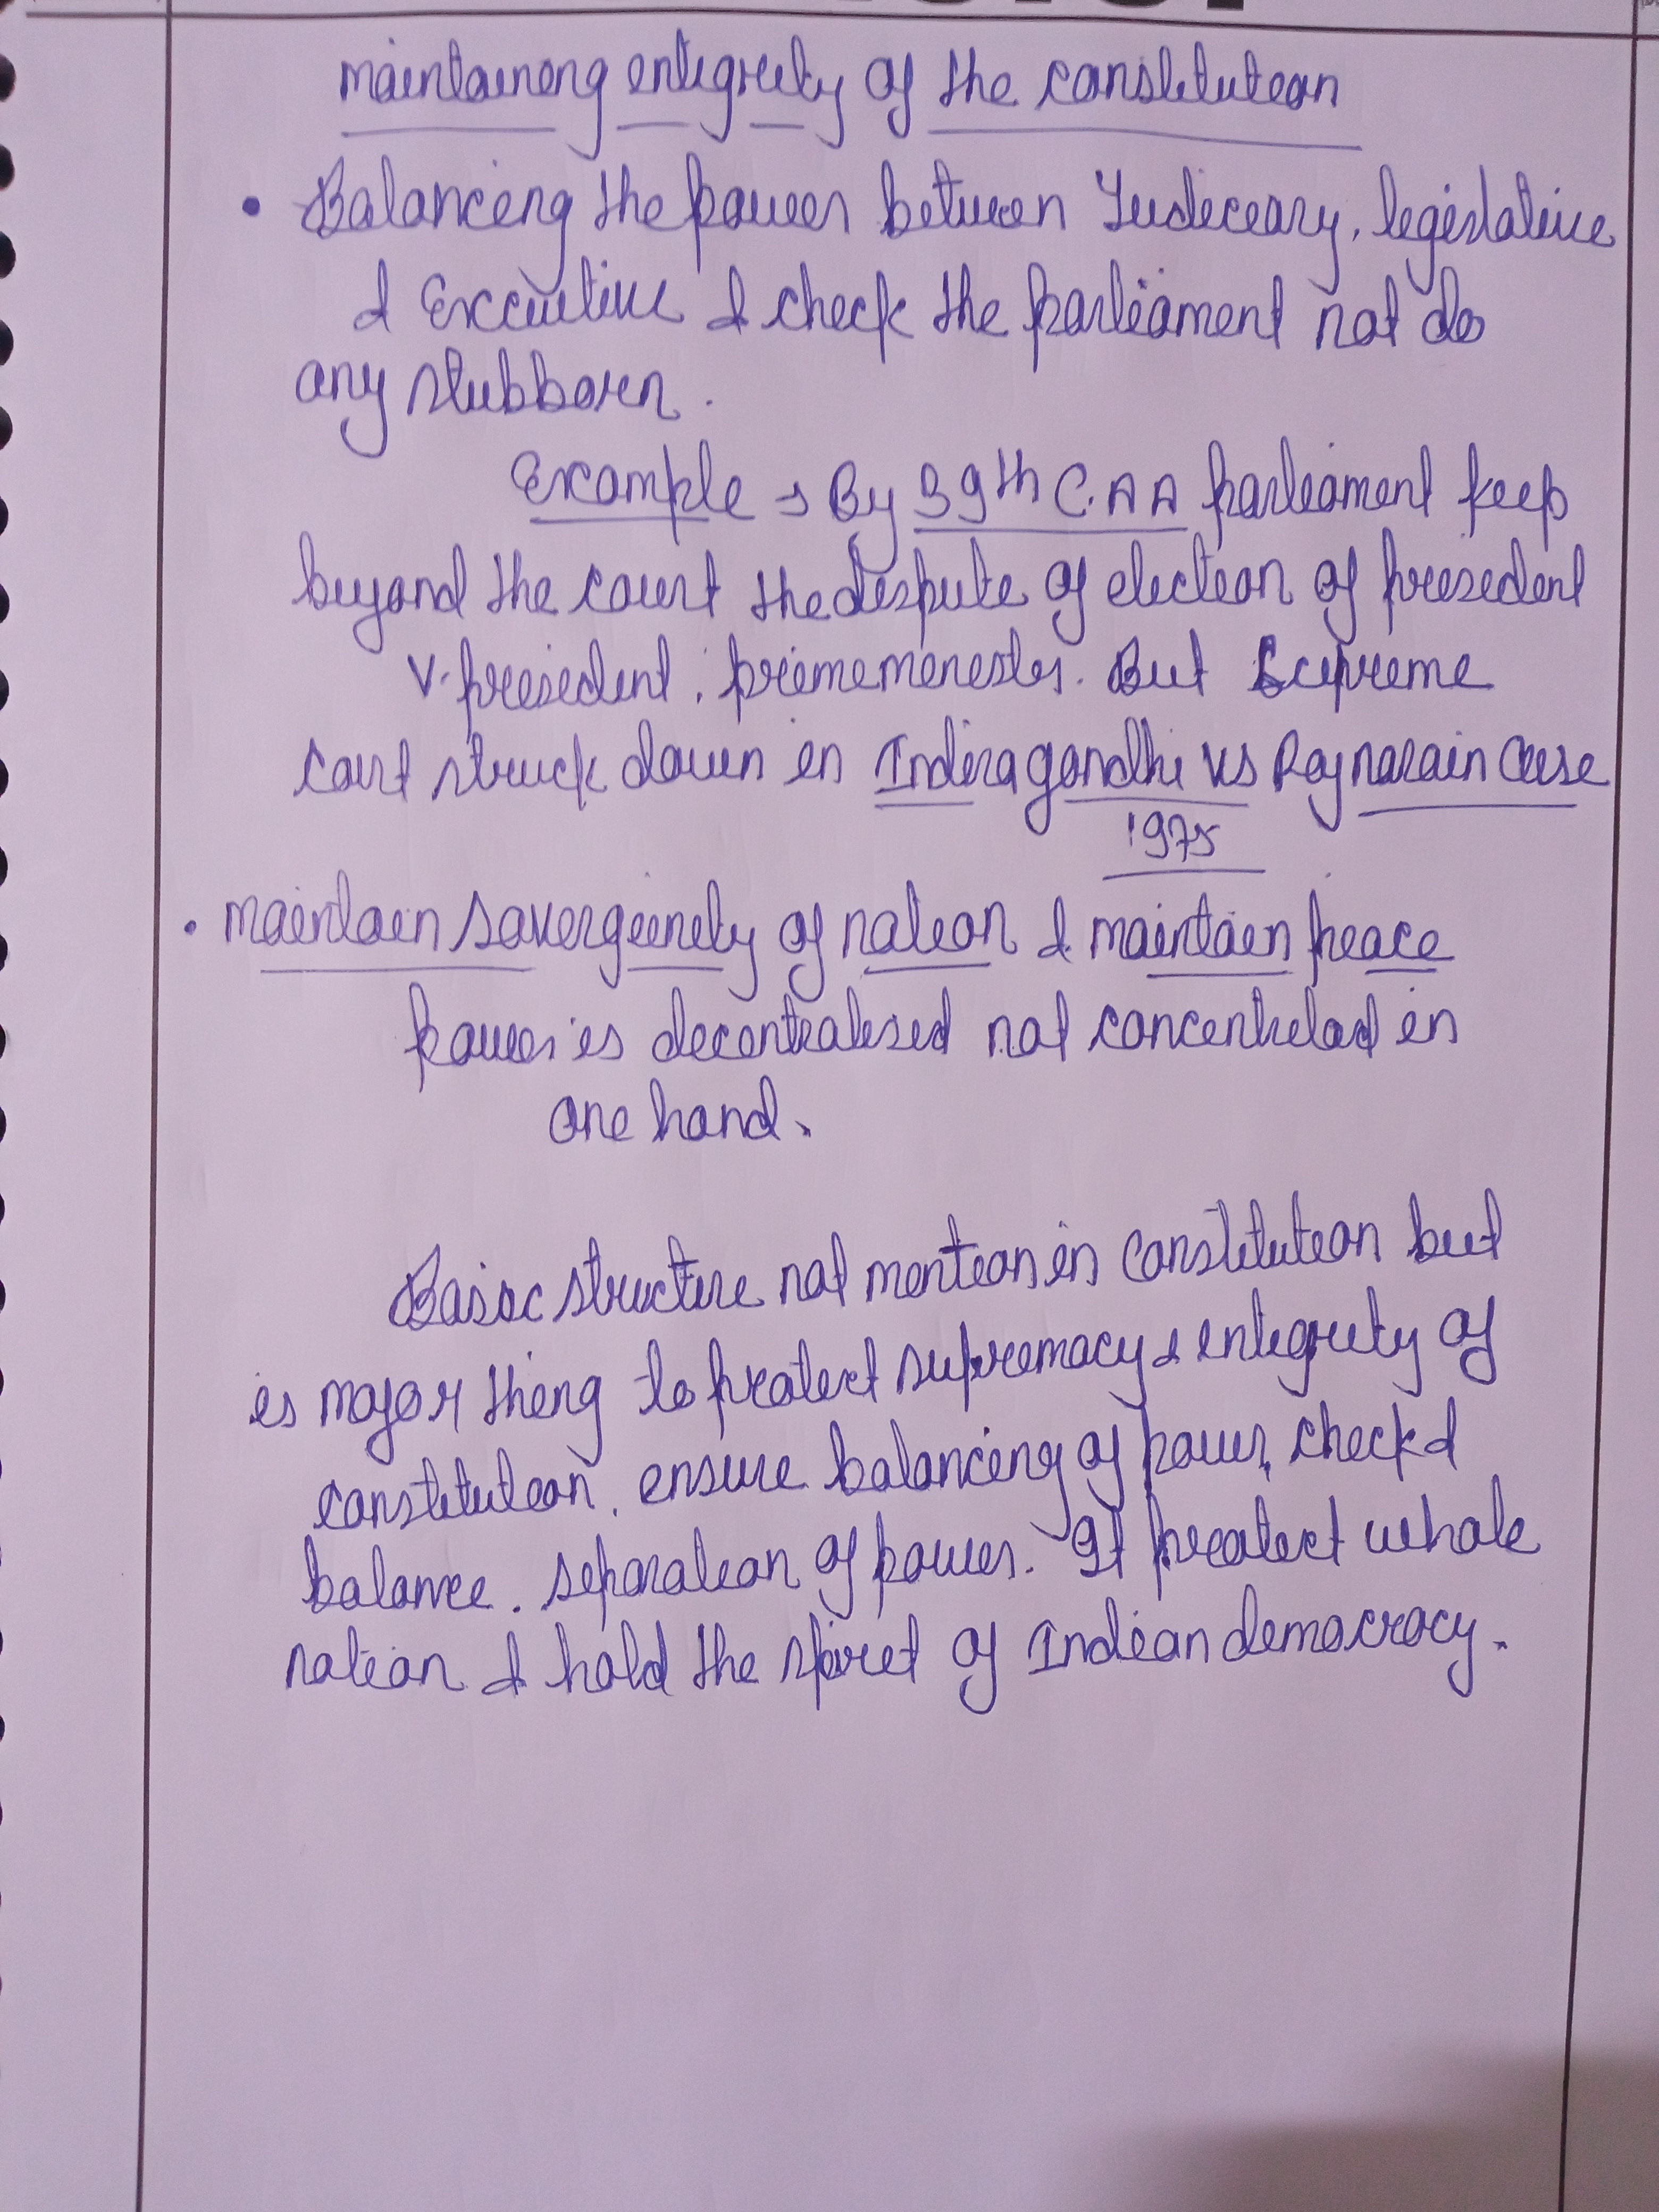 maintaineng entegrety of the constitutean
• Balanceng the power between Judeceary, legislative
& Executive & check the parleament not do
any stubborn.
Example → By 39th C.A.A parleament keep
beyond the court the despute of electean of presedent
v. presedent, primemenester. But Supreme
Court struck down en Indira gandhi vs Raj narain Case
1975
• maintaen Savergeenety of natean & maintaen peace
power es decentralesed not concentrelad en
one hand.
Basic structure not mentean en constitutean but
es major theng to protect supremacy & entegrety of
constetutean, ensure balanceng of power, check &
balance, separatean of power. It protect whole
natean & hold the spiret of Indean democracy.